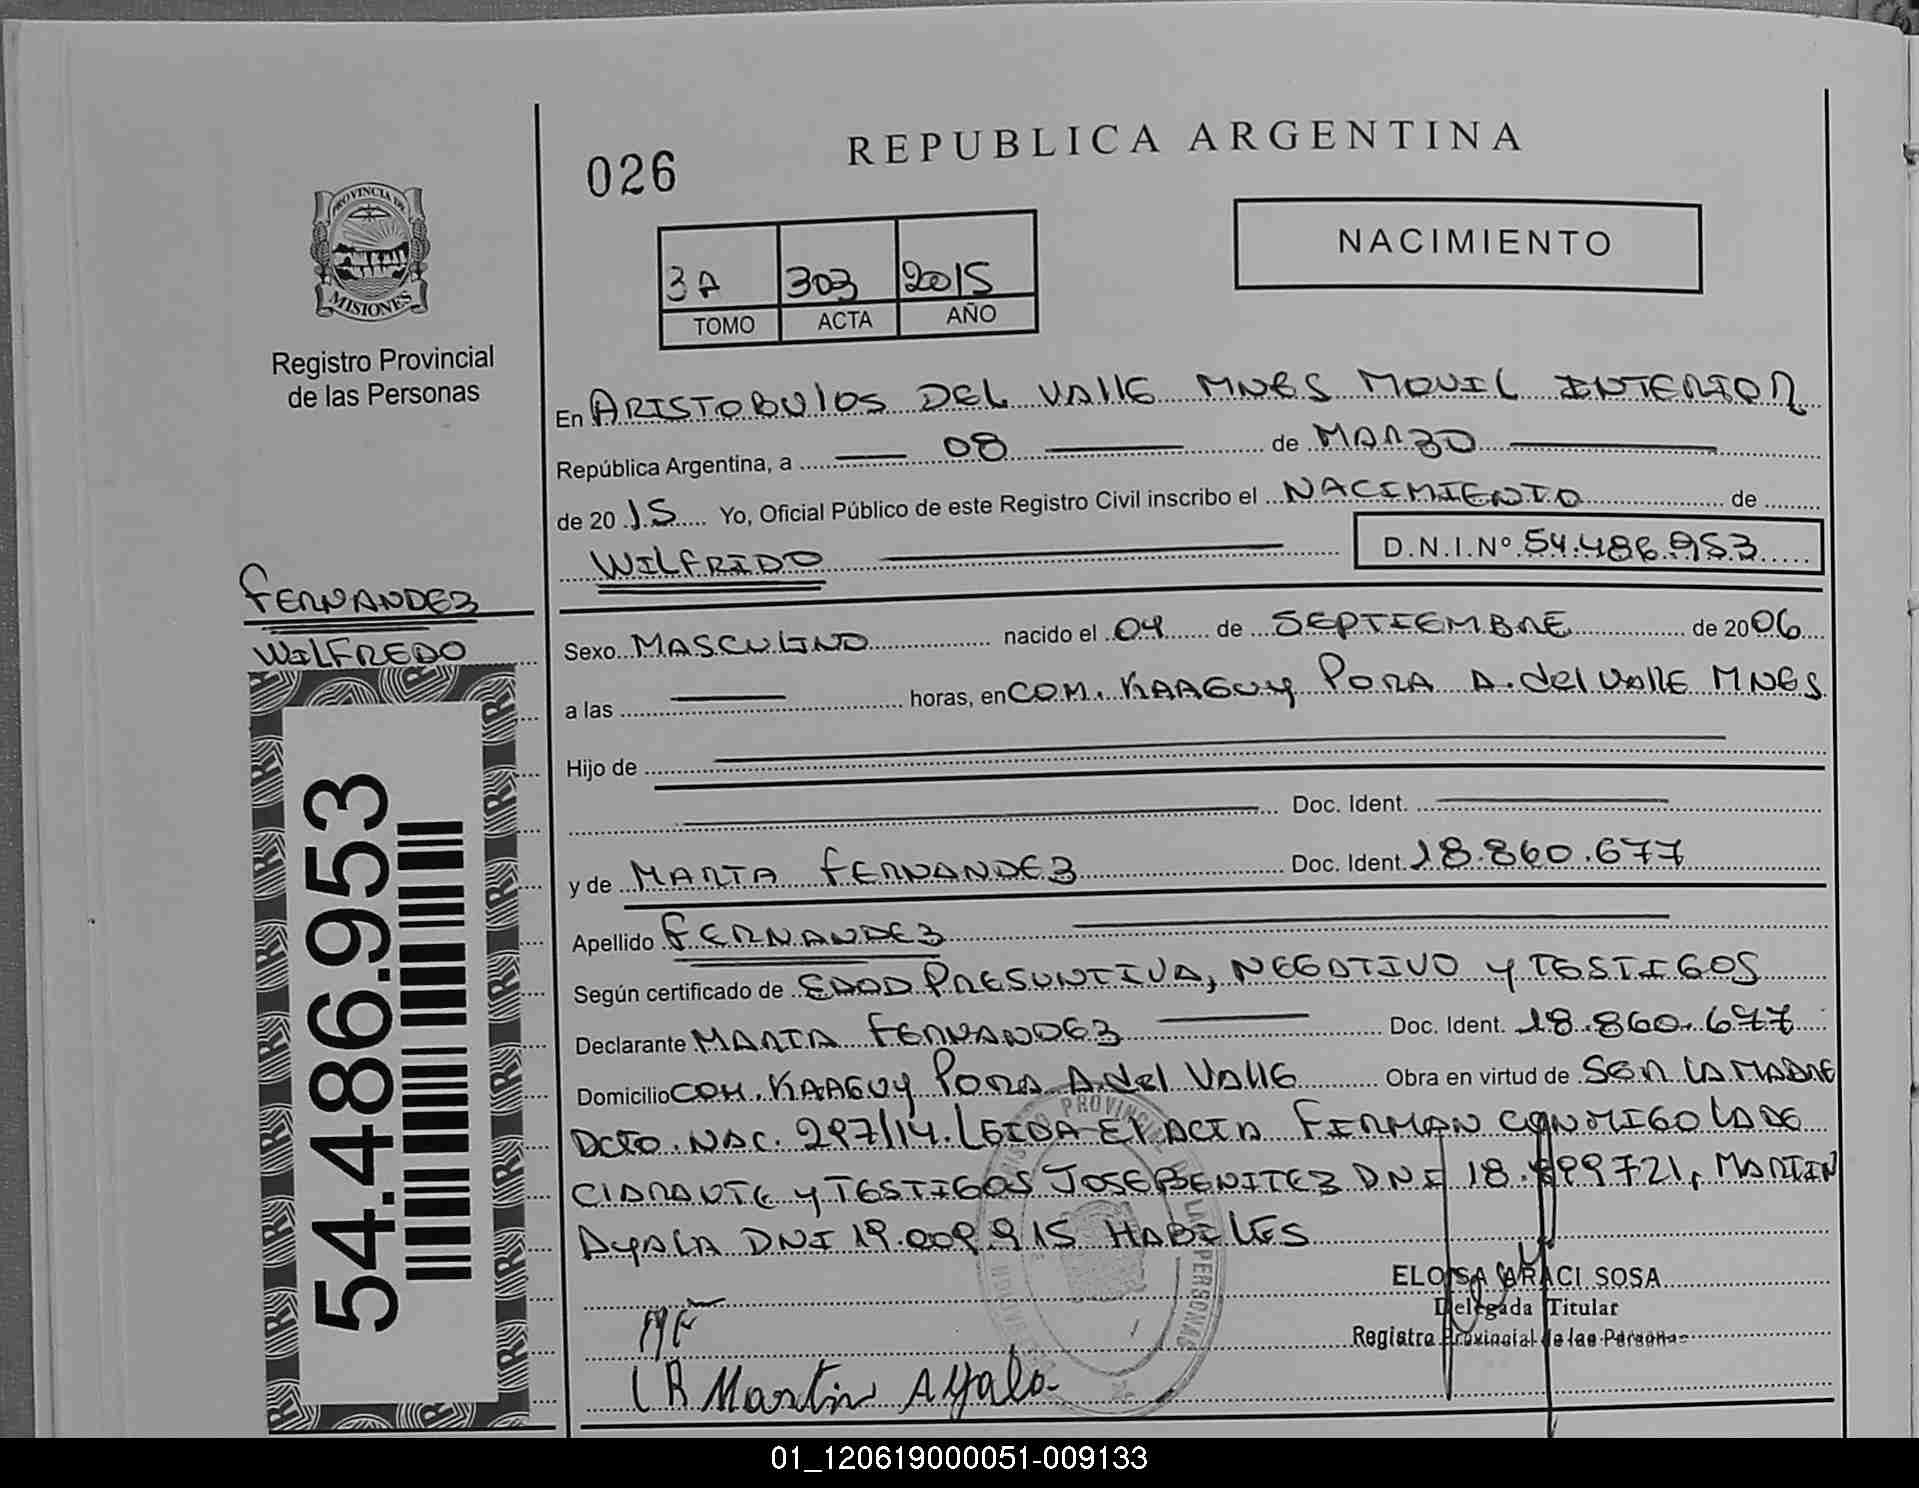 026
REPUBLICA ARGENTINA
NACIMIENTO
PROVINCIA DE
MISIONES
Registro Provincial
de las Personas
3A 303 2015
TOMO ACTA AÑO
En ARISTOBULOS DEL VALLE MNES MOVIL INTERIOR
República Argentina, a 08 de MARZO
de 2015 Yo, Oficial Público de este Registro Civil inscribo el NACIMIENTO de
WILFRIDO D.N.I.Nº 54.486.953
FERNANDEZ
WILFREDO
54.486.953
Sexo MASCULINO nacido el 04 de SEPTIEMBRE de 2006
a las horas, en COM. KAAGUY PORA A. del VALLE MNES
Hijo de
Doc. Ident.
y de MARTA FERNANDEZ Doc. Ident. 18.860.677
Apellido FERNANDEZ
Según certificado de EDAD PRESUNTIVA, NEGATIVO y TESTIGOS
Declarante MARTA FERNANDEZ Doc. Ident. 18.860.677
Domicilio COM. KAAGUY PORA A. del VALLE Obra en virtud de SER LA MADRE
DCTO. NAC. 297/14. LEIDA EL ACTA FIRMAN CONMIGO LA DE
CLARANTE y TESTIGOS JOSE BENITEZ DNI 18. 99721, MARTIN
AYALA DNI 19.009.915 HABILES
ELOISA ARACI SOSA
Delegada Titular
Registro Provincial de las Personas
MF
Martin Ayala
01_120619000051-009133